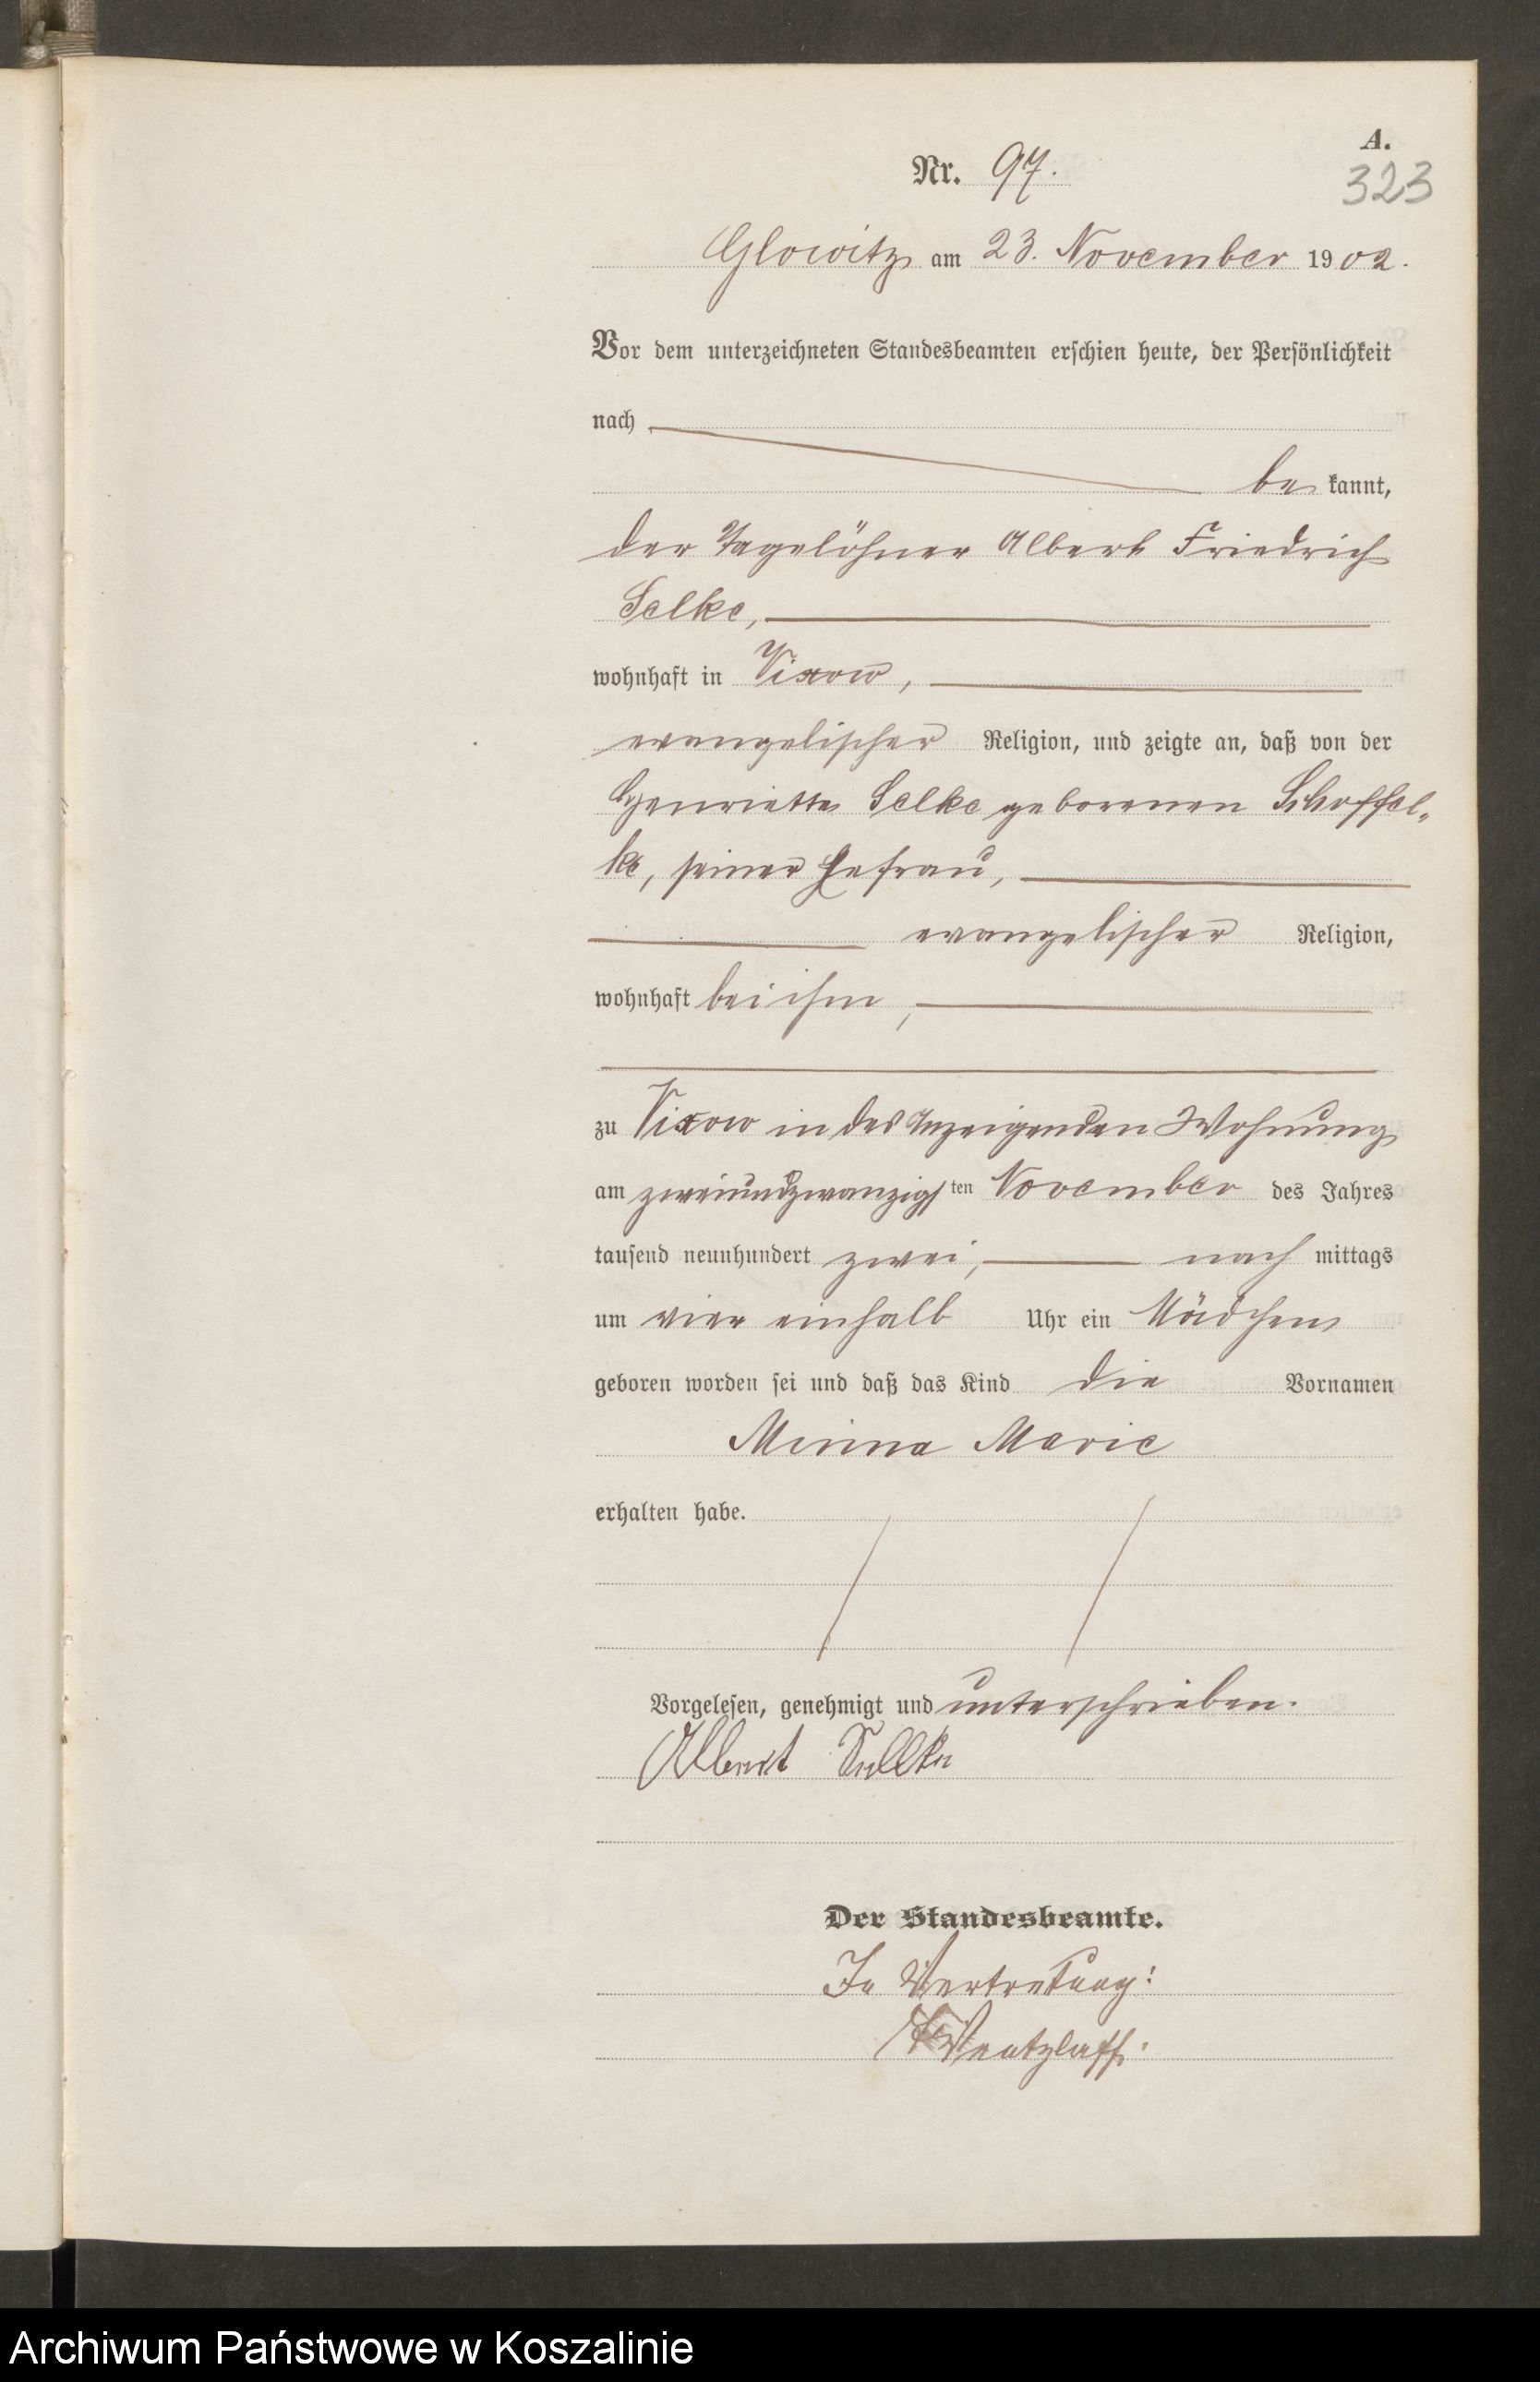 A.
Nr. 97.
323
Glowitz am 23. November 1902.
Vor dem unterzeichneten Standesbeamten erschien heute, der Persönlichkeit
nach
be kannt,
der Tagelöhner Albert Friedrich
Selke,
wohnhaft in Vixow,
evangelischer Religion, und zeigte an, daß von der
Henriette Selke geborenen Schoffel-
ke, seiner Ehefrau,
evangelischer Religion,
wohnhaft bei ihm,
zu Vixow in des Anzeigenden Wohnung
am zweiundzwanzigsten November des Jahres
tausend neunhundert zwei, nach mittags
um vier einhalb Uhr ein Mädchen
geboren worden sei und daß das Kind die Vornamen
Minna Marie
erhalten habe.
Vorgelesen, genehmigt und unterschrieben.
Albert Sellke
Der Standesbeamte.
In Vertretung:
Wentzlaff.
Archiwum Państwowe w Koszalinie